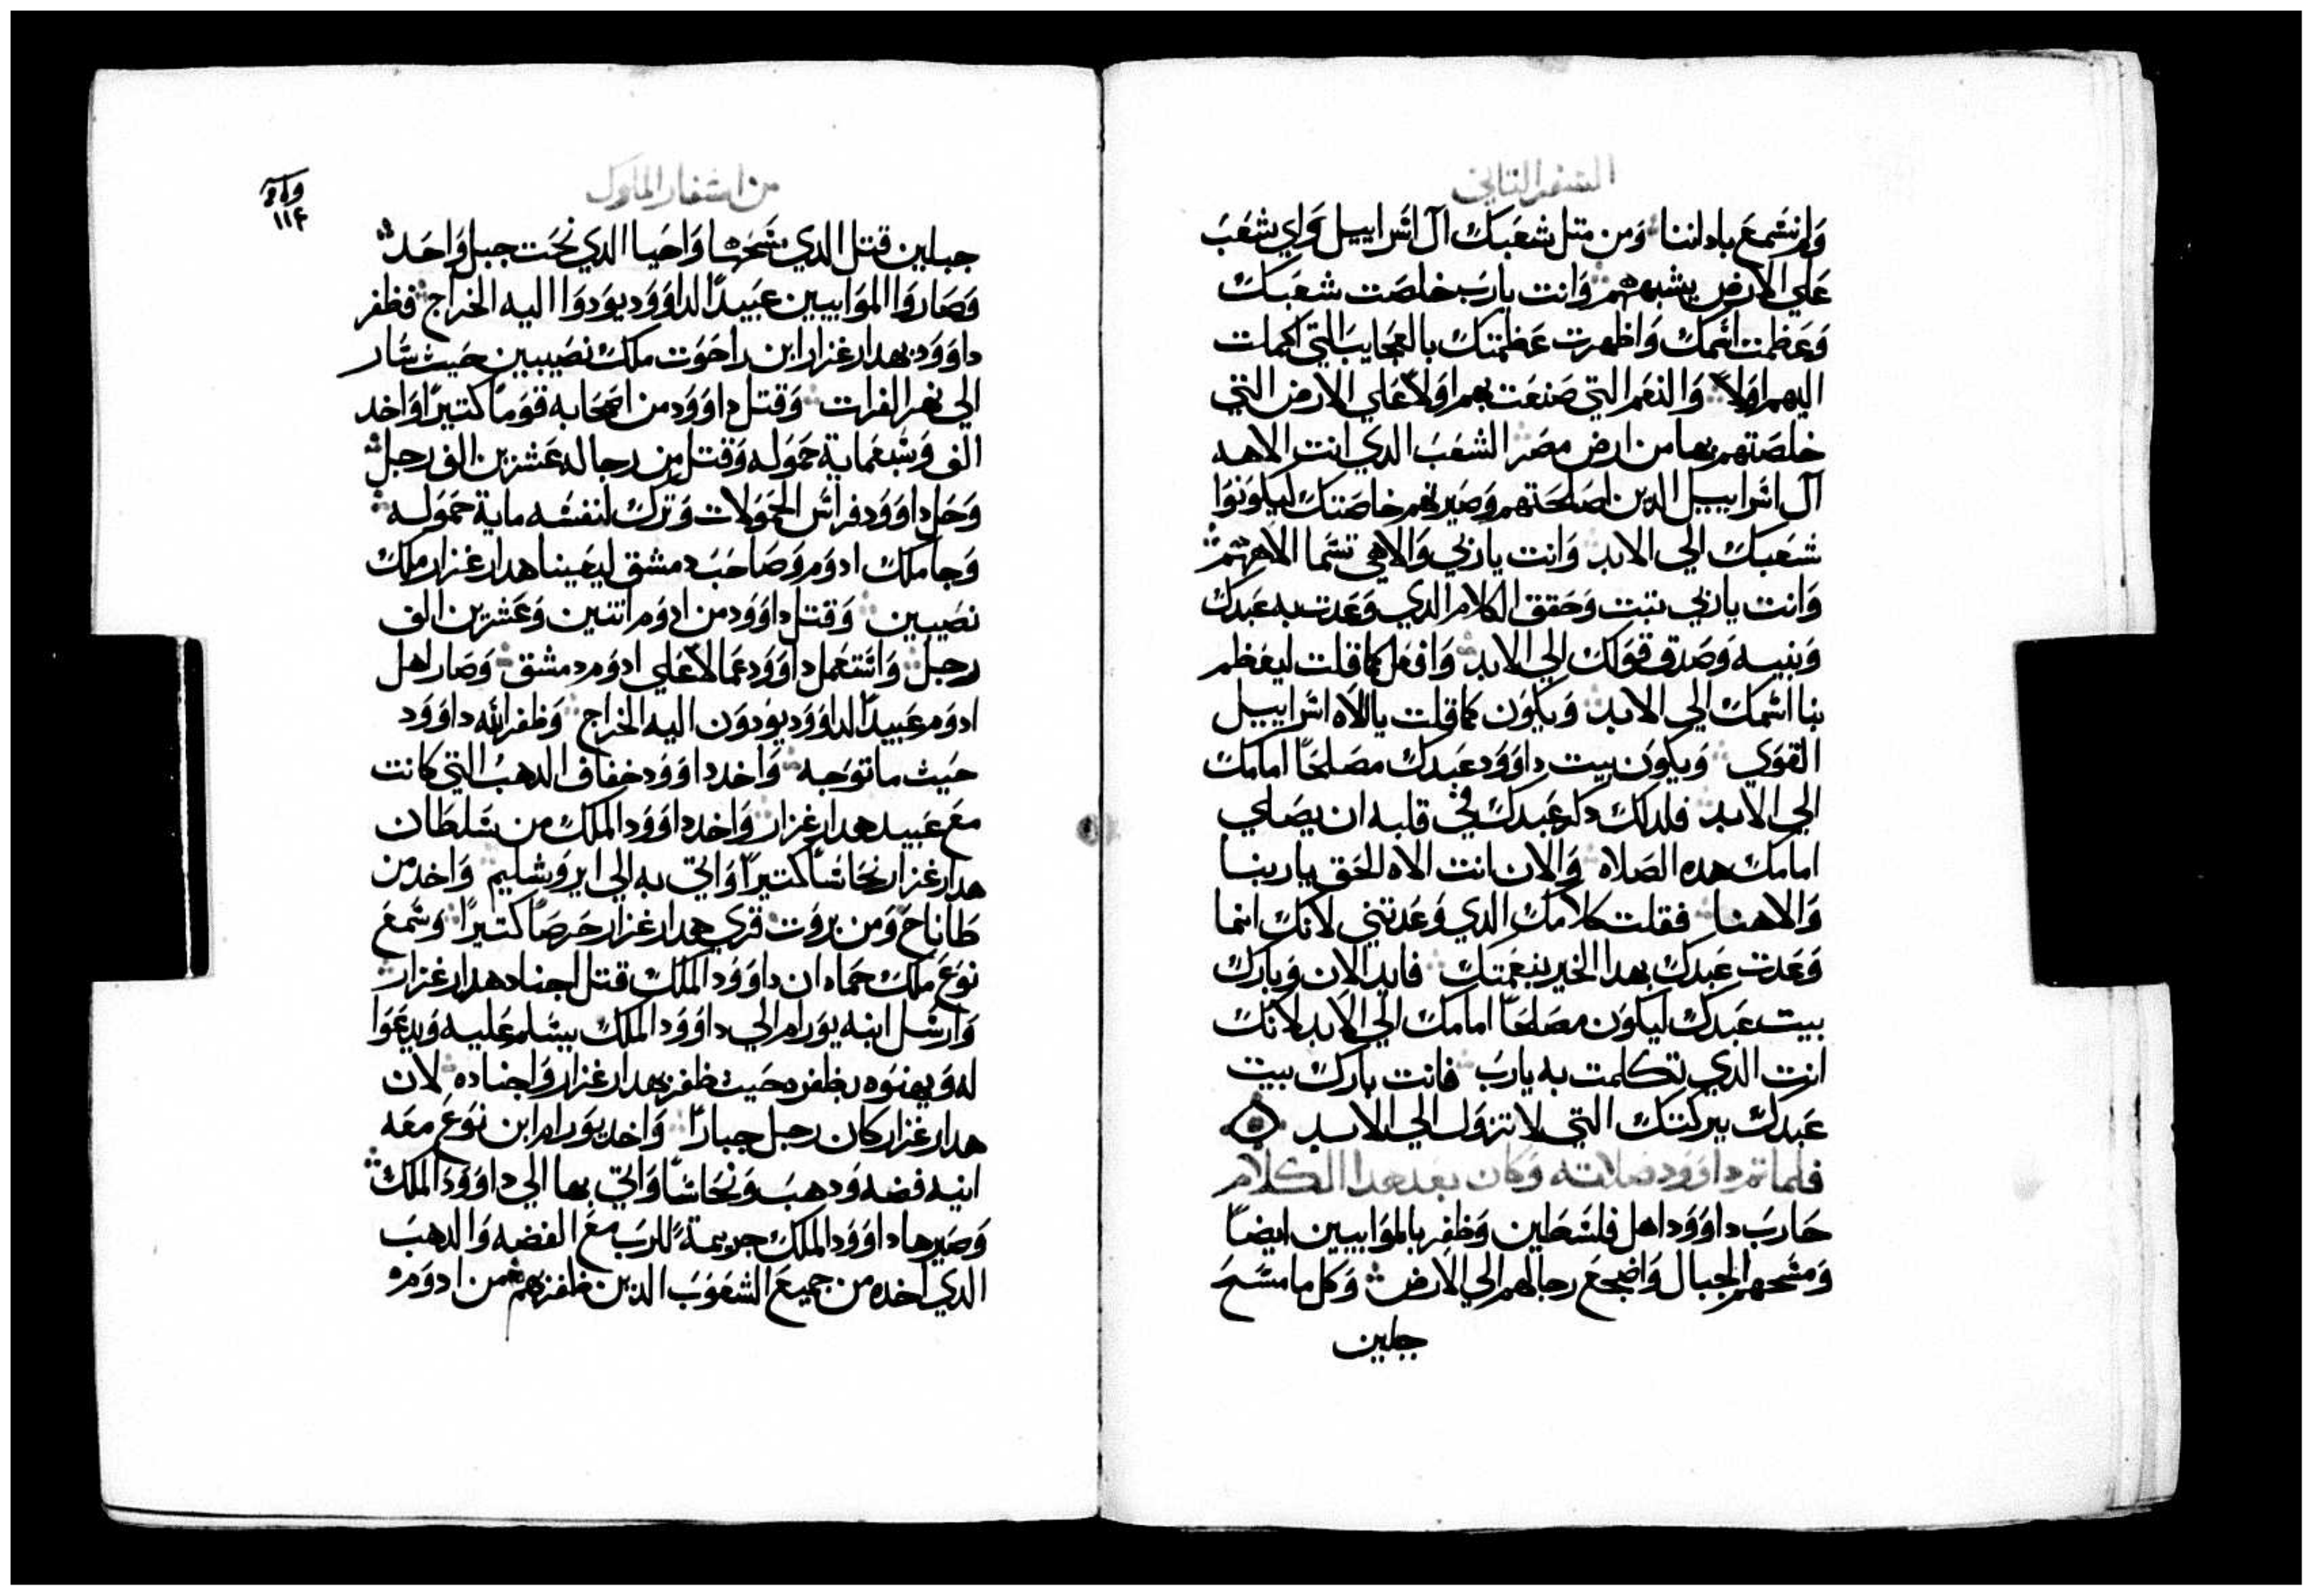 السفر التاني
وَلم نسمع باداننا وَمن متل شعبك آل اسراييل وَاي شعب
علي الارض يشبههم وَانت يارب خلصت شعبك
وَعظمت اسمك وَاظهرت عظمتك بالعجايب التي اكملت
اليهم اولاً وَالنعم التي صنعت بهم اولاً علي الارض التي
خلصتهم بها من ارض مصر الشعب الدي انت الاهه
آل اسراييل الدين اصلحتهم وَصيرتهم خاصتك ليكونوا
شعبك الي الابد وَانت ياربي وَالاهي تسما الاههم
وَانت ياربي تبت وَحقق الكلام الدي وَعدت به عبدك
وَبنيه وَصدق قولك الي الابد وَافعل كما قلت ليعظم
بنا اسمك الي الابد وَيكون كما قلت يا الاه اسراييل
القوي وَيكون بيت داوود عبدك مصلحاً امامك
الي الابد فلدلك دكر عبدك في قلبه ان يصلي
امامك هده الصلاه وَالان انت الاه الحق ياربنا
وَالاهنا فقلت كلامك الدي وَعدتني لانك انما
وَعدت عبدك بهدا الخير بنعمتك فابدا الان وَبارك
بيت عبدك ليكون مصلحاً امامك الي الابد لانك
انت الدي تكلمت به يارب فانت بارك بيت
عبدك ببركتك التي لا تزول الي الابد
فلما تم داوود صلاته وَكان بعد هدا الكلام
حارب داوود اهل فلسطين وَظفر بالموابيين ايضاً
وَمسحهم بالجبال وَاضجع رجالهم الي الارض وَكل ما مسح
جبلين
من اسفار الملوك
١١٤
جبلين قتل الدي مسحها وَاحيا الدي نحت جبل وَاحد
وَصاروا الموابيين عبيداً لداوود يودوا اليه الخراج فظفر
داوود بهدار غزار ابن راحوت ملك نصيبين حيث سار
الي نهر الفرات وَقتل داوود من اصحابه قوماً كتيراً وَاخد
الف وَسبعماية حموله وَقتل من رجاله عشرين الف رجل
وَحل داوود فراس الحمولات وَترك لنفسه ماية حموله
وَجا ملك ادوم وَصاحب دمشق ليعينا هدار غزار ملك
نصيبين وَقتل داوود من ادوم اتنين وَعشرين الف
رجل وَاستعمل داوود عمالاً علي ادوم دمشق وَصار اهل
ادوم عبيداً لداوود يودون اليه الخراج وَظفر الله داوود
حيث ما توجه وَاخد داوود خفاف الدهب التي كانت
مع عبيد هدار غزار وَاخد داوود الملك من سلطان
هدار غزار نحاساً كتيراً وَاتي به الي ايروشليم وَاخد من
طاناح وَمن بروت قري هدار غزار حرصاً كتيراً وَسمع
نوع ملك حماه ان داوود الملك قتل اجناد هدار غزار
وَارسل ابنه يورام الي داوود الملك يسلم عليه وَيدعوا
له وَيهنوه بظفره حيث ظفر بهدار غزار وَاجناده لان
هدار غزار كان رجل جباراً وَاخد يورام ابن نوع معه
انيه فضه وَدهب وَنحاساً وَاتي بها الي داوود الملك
وَصيرها داوود الملك جريمةً للرب مع الفضه وَالدهب
الدي اخده من جميع الشعوب الدين ظفر بهم من ادوم